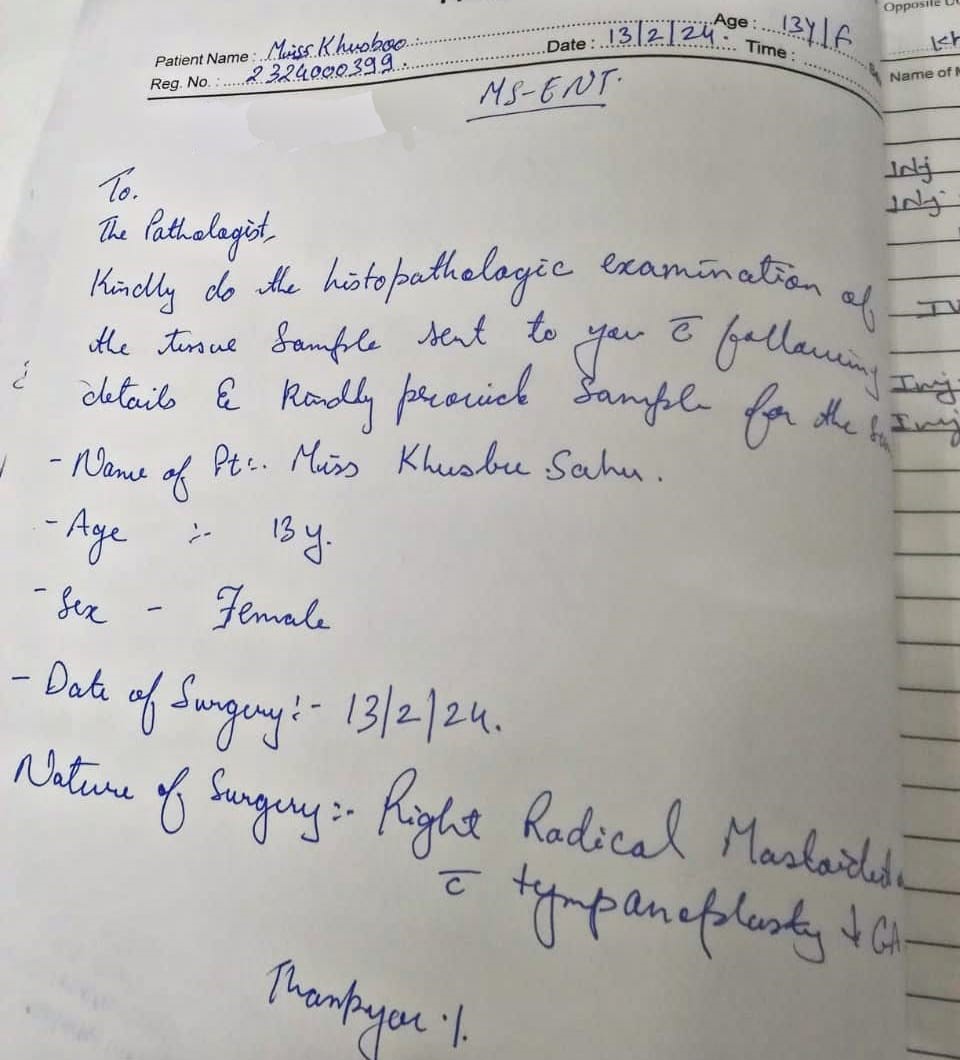 Opposite
Patient Name : Miss Khusboo Age : 13Y/F
Reg. No. : 2324000399 Date : 13/2/24 Time :
Name of
MS-ENT.
Inj
Inj
To.
The Pathologist,
Kindly do the histopathologic examination of
the tissue sample sent to you c̄ following
details & kindly sample for the
Inj
Inj
- Name of Pt:- Miss Khusbu Sahu.
- Age :- 13 y.
- Sex - Female
- Date of Surgery:- 13/2/24.
Nature of Surgery:- Right Radical
c̄ tympanoplasty ↓ GA
Thankyou ·/.